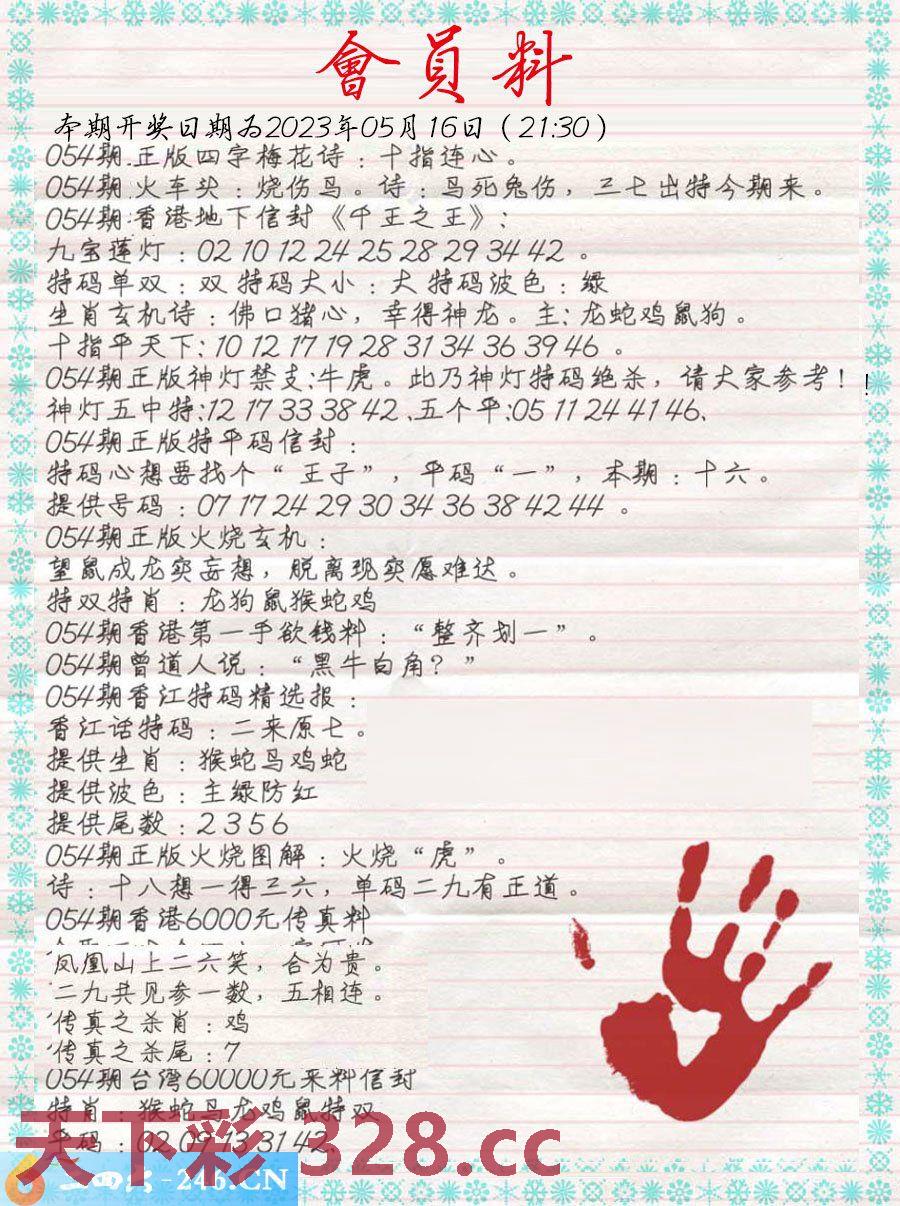 會員料
本期开奖日期为2023年05月16日（21:30）
054期.正版四字梅花诗：十指连心。
054期.火车头：烧伤鸟。诗：鸟死兔伤，三七出特今期来。
054期:香港地下信封《千王之王》:
九宝莲灯：02 10 12 24 25 28 29 34 42 。
特码单双：双 特码大小：大 特码波色：绿
生肖玄机诗：佛口猪心，幸得神龙。主: 龙蛇鸡鼠狗。
十指平天下: 10 12 17 19 28 31 34 36 39 46 。
054期正版神灯禁支:牛虎。此乃神灯特码绝杀，请大家参考！!
神灯五中特:12 17 33 38 42 、五个平:05 11 24 41 46、
054期正版特平码信封：
特码心想要找个“ 王子”，平码“一”，本期：十六。
提供号码：07 17 24 29 30 34 36 38 42 44 。
054期正版火烧玄机：
望鼠成龙实妄想，脱离现实愿难达。
特双特肖：龙狗鼠猴蛇鸡
054期香港第一手欲钱料：“整齐划一”。
054期曾道人说：“黑牛白角？”
054期香江特码精选报：
香江话特码：二来原七。
提供生肖：猴蛇马鸡蛇
提供波色：主绿防红
提供尾数：2 3 5 6
054期正版火烧图解：火烧“虎”。
诗：十八想一得三六，单码二九有正道。
054期香港6000元传真料
凤凰山上二六笑，合为贵。
二九共见参一数，五相连。
传真之杀肖：鸡
传真之杀尾：7
054期台灣60000元来料信封
特肖：猴蛇马龙鸡鼠特双
平码：02 09 13 31 42、
天下彩 328.cc
二四六-246.CN